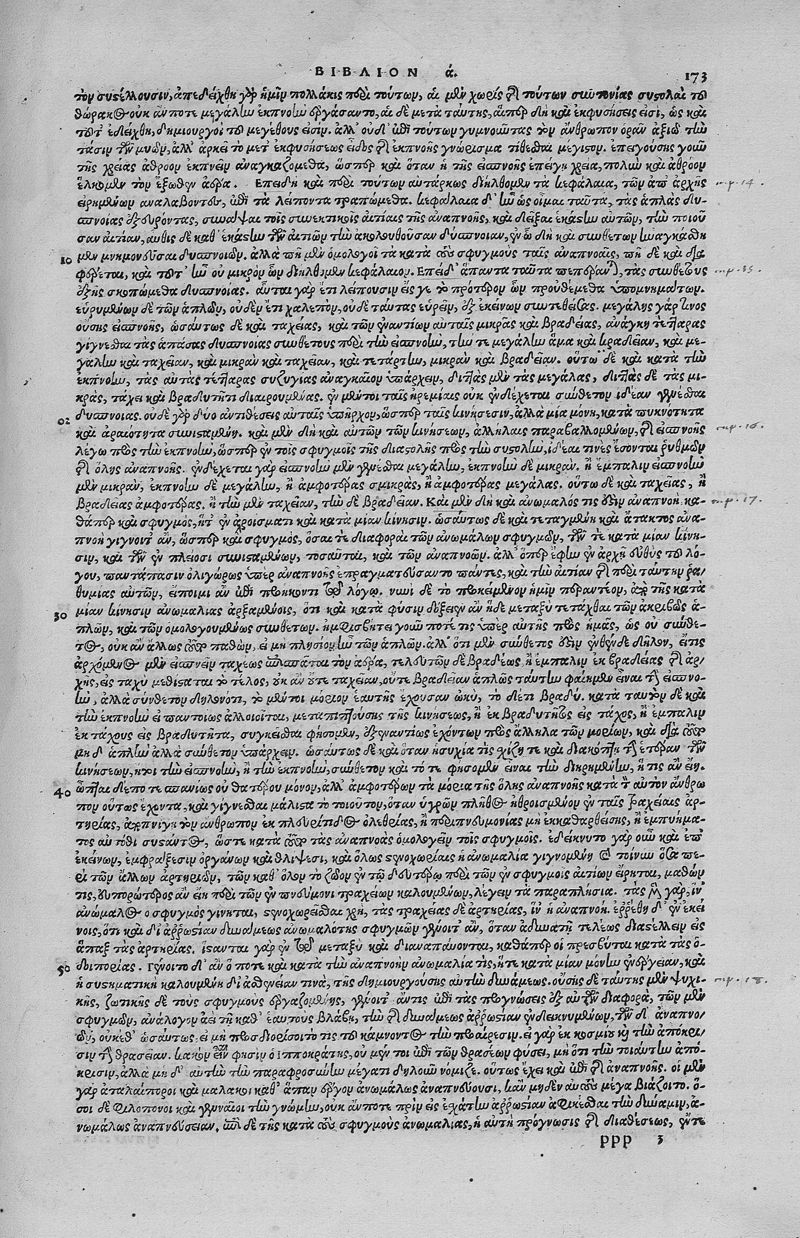 ΒΙΒΛΙΟΝ ά.
173
τὸν συστέλλουσιν, ἀπεδείχθη γὰρ ἡμῖν πολλάκις περὶ τούτων, αἱ μὲν χωρὶς τῆς τούτων συντονίας συστολαὶ τοῦ
θώρακος οὐκ ἄν ποτε μεγάλην ἐκπνοὴν ἐργάσαντο, αἱ δὲ μετὰ ταύτης, αἵπερ δὴ καὶ ἐκφυσήσεις εἰσὶ, ὡς καὶ
τοῦτ' ἐδείχθη, δημιουργοὶ τοῦ μεγέθους εἰσίν. ἀλλ' οὐδ' ἐπὶ τούτων γυμνοῦντας τὸν ἄνθρωπον ὁρᾶν ἀξιῶ τὴν
τάσιν τῶν μυῶν, ἀλλ' ἀρκεῖ τὸ μετ' ἐκφυσήσεως εἶδος τῆς ἐκπνοῆς γνώρισμα τίθεσθαι μέγιστον. ἐπειγούσης γοῦν
τῆς χρείας ἀθρόον ἐκπνεῖν ἀναγκαζόμεθα, ὥσπερ καὶ ὅταν ἡ τῆς εἰσπνοῆς ἐπείγῃ χρεία, πολὺν καὶ ἀθρόον
ἕλκομεν τὸν ἔξωθεν ἀέρα. Ἐπειδὴ καὶ περὶ τούτων αὐτάρκως διήλθομεν τὰ κεφάλαια, τῶν ἀπ' ἀρχῆς
εἰρημένων ἀναλαβόντες, ἐπὶ τὰ λείποντα τραπώμεθα. κεφάλαια δ' ἦν ὡς οἶμαι ταῦτα, τὰς ἁπλᾶς δυσ-
πνοίας ἐξευρόντας, συνάψαι τοῖς συνεκτικοῖς αἰτίοις τῆς ἀναπνοῆς, καὶ δεῖξαι ἑκάστῳ αὐτῶν, τὴν ποιοῦ
σαν αἰτίαν, αὖθις δὲ καθ' ἑκάστην τῶν αἰτιῶν τὴν ἀκολουθοῦσαν δύσπνοιαν, ἐν ᾧ δὴ καὶ συνθέτων ἠναγκάσθη
10 μεν μνημονεῦσαι δυσπνοιῶν. ἀλλὰ πῆ μὲν ὁμολογεῖ τὰ κατὰ τοὺς σφυγμοὺς ταῖς ἀναπνοαῖς, πῆ δὲ καὶ δια
φέρεται, καὶ τοῦτ' ἦν οὐ μικρὸν ὧν διήλθομεν κεφάλαιον. Ἐπειδ' ἅπαντα ταῦτα πεπέρανται, τὰς συνθέτους
ἑξῆς σκοπώμεθα δυσπνοίας. αὗται γὰρ ἔτι λείπουσιν εἰς γε τὸ πρότερον ὧν προὐθέμεθα ὑπομνημάτων.
εὑρημένων δὲ τῶν ἁπλῶν, οὐδὲν ἔτι χαλεπὸν, οὐδὲ ταύτας εὑρεῖν, ἐξ ἐκείνων συντεθείσας. μεγάλης γάρ τινος
οὔσης εἰσπνοῆς, ὡσαύτως δὲ καὶ ταχείας, καὶ τῶν ἐναντίων αὐταῖς μικρᾶς καὶ βραδείας, ἀνάγκη τέτταρας
γίγνεσθαι τὰς ἁπάσας δυσπνοίας συνθέτους περὶ τὴν εἰσπνοὴν, τήν τε μεγάλην ἅμα καὶ βραδεῖαν, καὶ με-
γάλην καὶ ταχεῖαν, καὶ μικρὰν καὶ ταχεῖαν, καὶ τετάρτην, μικρὰν καὶ βραδεῖαν. οὕτω δὲ καὶ κατὰ τὴν
ἐκπνοὴν, τὰς αὐτὰς τέτταρας συζυγίας ἀναγκαῖον ὑπάρχειν, διττὰς μὲν τὰς μεγάλας, διττὰς δὲ τὰς μι-
κρὰς, τάχει καὶ βραδυτῆτι διαιρουμένας. ἐν μέντοι ταῖς ἠρεμίαις οὐκ ἐνδέχεται σύνθετον ἰδέαν γενέσθαι
02 δυσπνοίας. οὐδὲ γὰρ δύο ἀντιθέσεις αὐταῖς ὑπῆρχον, ὥσπερ ταῖς κινήσεσιν, ἀλλὰ μία μόνη, κατὰ πυκνότητα
καὶ ἀραιότητα συνισταμένη. καὶ μὲν δὴ καὶ αὐτῶν τῶν κινήσεων, ἀλλήλαις παραβαλλομένων, τῆς εἰσπνοῆς
λέγω πρὸς τὴν ἐκπνοὴν, ὥσπερ ἐν τοῖς σφυγμοῖς τῆς διαστολῆς πρὸς τὴν συστολὴν, ἰδέαι τινὲς ἔσονται ῥυθμῶν
τῆς ὅλης ἀναπνοῆς. ἐνδέχεται γὰρ εἰσπνοὴν μὲν γενέσθαι μεγάλην, ἐκπνοὴν δὲ μικρὰν. ἢ ἔμπαλιν εἰσπνοὴν
μὲν μικρὰν, ἐκπνοὴν δὲ μεγάλην, ἢ ἀμφοτέρας σμικρὰς, ἢ ἀμφοτέρας μεγάλας. οὕτω δὲ καὶ ταχείας, ἢ
βραδείας ἀμφοτέρας. ἢ τὴν μὲν ταχεῖαν, τὴν δὲ βραδεῖαν. Καὶ μὲν δὴ καὶ ἀνώμαλός τις ἐστὶν ἀναπνοὴ κα-
θάπερ καὶ σφυγμὸς, ἥτ' ἐν ἀθροίσματι καὶ κατὰ μίαν κίνησιν. ὡσαύτως δὲ καὶ τεταγμένη καὶ ἄτακτος ἀνα-
πνοὴ γίγνοιτ' ἂν, ὥσπερ καὶ σφυγμὸς, ὅσαι τε διαφοραὶ τῶν ἀνωμάλων σφυγμῶν, τῶν τε κατὰ μίαν κίνη-
σιν, καὶ τῶν ἐν πλείοσι συνισταμένων, τοσαῦται, καὶ τῶν ἀναπνοῶν. ἀλλ' ὅπερ ἔφην ἐν ἀρχῇ εὐθὺς τοῦ λό-
γου, παντάπασιν ὀλιγώρως ὑπὲρ ἀναπνοῆς ἐπραγματεύσαντο πάντες, καὶ τὴν αἰτίαν τῆς περὶ ταύτην ῥᾳ-
θυμίας αὐτῶν, εἴποιμι ἂν ἐπὶ προήκοντι τῷ λόγῳ. νυνὶ δὲ τὸ προκείμενον ἡμῖν περαντέον, ἀπὸ τῆς κατὰ
30 μίαν κίνησιν ἀνωμαλίας ἀρξαμένοις, ὅτι καὶ κατὰ φύσιν δόξειεν ἂν ἥδε μεταξὺ τετάχθαι τῶν ἀκριβῶς ἁ-
πλῶν, καὶ τῶν ὁμολογουμένως συνθέτων. ἠμφισβήτει γοῦν ποτέ τις ὑπὲρ αὐτῆς πρὸς ἡμᾶς, ὡς οὐ σύνθε-
τος, οὐκ ἂν ἄλλως παθὼν, εἰ μὴ πλησίον ἦν τῶν ἁπλῶν. ἀλλ' ὅτι μὲν σύνθετος ἐστὶν ἐνθένδε δῆλον, εἴ τις
ἀρχόμενος μὲν εἰσπνεῖν ταχέως ἐπισπᾶται τὸν ἀέρα, τελευτῶν δὲ βραδέως ἢ ἔμπαλιν ἐκ βραδείας τῆς ἀρ-
χῆς, εἰς ταχὺ μεθίσταται τὸ τέλος, οὐκ ἂν οὔτε ταχεῖαν, οὔτε βραδεῖαν ἁπλῶς ταύτην φαίημεν εἶναι τὴν εἰσπνο-
ὴν, ἀλλὰ σύνθετον δηλονότι, τὸ μέν τοι μόριον ἑαυτῆς ἔχουσαν ὠκὺ, τὸ δέ τι βραδύ. κατὰ ταὐτὸν δὲ καὶ
τὴν ἐκπνοὴν εἰ παντοίως ἀλλοιοῖτο, μεταπιπτούσης τῆς κινήσεως, ἢ ἐκ βραδυτῆτος εἰς τάχος, ἢ ἔμπαλιν
ἐκ τάχους εἰς βραδυτῆτα, συγκεῖσθαι φήσομεν, ἐξ ἐναντίως ἐχόντων πρὸς ἄλληλα τῶν μορίων, καὶ διὰ τοῦτο
μηδ' ἁπλῆν ἀλλὰ σύνθετον ὑπάρχειν. ὡσαύτως δὲ καὶ ὅταν ἡσυχία τις σχίζῃ τε καὶ διακόπτῃ τὴν ἑτέραν τῶν
κινήσεων, ἤτοι τὴν εἰσπνοὴν, ἢ τὴν ἐκπνοὴν, σύνθετον καὶ τό τε φήσομεν εἶναι τὴν διῃρημένην, ἥ τις ἂν εἴη.
40 ὦπται δέ ποτε σπανίως οὐ θάτερον μόνον, ἀλλ' ἀμφότερα τὰ μόρια τῆς ὅλης ἀναπνοῆς κατὰ τ' αὐτὸν ἄνθρω
πον οὕτως ἔχοντα, καὶ γίγνεσθαι μάλιστα τὸ τοιοῦτον, ὅταν ὑγρῶν πλῆθος ἠθροισμένον ἐν ταῖς τραχείαις ἀρ-
τηρίαις, ἀποπνίγῃ τὸν ἄνθρωπον ἐκ πλευρίτιδος ὀλεθρίας, ἢ περιπνευμονίας μὴ ἐκκαθαρθείσης, ἢ ἐμπυήμα-
τος αὐτόθι συστάντος, ὥστε κατὰ τοῦτο τὰς ἀναπνοὰς ὁμολογεῖν τοῖς σφυγμοῖς. ἐδείκνυτο γὰρ οὖν καὶ ἐπ'
ἐκείνων, ἐμφράξεσιν ὀργάνων καὶ θλίψεσι, καὶ ὅλως στενοχωρίαις ἡ ἀνωμαλία γιγνομένη. τοίνυν ὅσα πε-
ρὶ τῶν ἄλλων ἀρτηριῶν, τῶν καθ' ὅλον τὸ ζῶον ἐν τῷ δευτέρῳ περὶ τῶν ἐν σφυγμοῖς αἰτίων εἴρηται, μαθών
τις, εὐπορώτερος ἂν εἴη περὶ τῶν ἐν πνεύμονι τραχειῶν καλουμένων, λέγειν τὰ παραπλήσια. τὰς μὲν γὰρ, ἵν'
ἀνώμαλος ὁ σφυγμὸς γίνηται, στενοχωρεῖσθαι χρὴ, τὰς τραχείας δὲ ἀρτηρίας, ἵν' ἡ ἀναπνοή. ἐρρέθη δ' ἐν ἐκεί
νοις, ὅτι καὶ δι' ἀρρωστίαν δυνάμεως ἀνωμαλότης σφυγμῶν γένοιτ' ἂν, ὅταν ἀδυνατῇ τελέως διαστέλλειν εἰς
ἅπαξ τὰς ἀρτηρίας. ἵστανται γὰρ ἐν τῷ μεταξὺ καὶ διαναπαύονται, καθάπερ οἱ πρεσβῦται κατὰ τὰς ὁ-
50 δοιπορίας. Γένοιτο δ' ἄν ποτε καὶ κατὰ τὴν ἀναπνοὴν ἀνωμαλία τις, ἥτε κατὰ μίαν μόνην ἐνέργειαν, καὶ
ἡ συστηματικὴ καλουμένη δι' ἀσθένειαν τινὰ, τῆς δημιουργούσης αὐτὴν δυνάμεως. οὔσης δὲ ταύτης μὲν ψυχι-
κῆς, ζωτικῆς δὲ τοὺς σφυγμοὺς ἐργαζομένης, γένοιτ' ἄν τις ἐπὶ τὰς προγνώσεις ἐξ αὐτῶν διαφορὰ, τῶν μὲν
σφυγμῶν, ἀνάλογον ἀεὶ τῇ καθ' ἑαυτοὺς βλάβῃ, τὴν τῆς δυνάμεως ἀρρωστίαν ἐνδεικνυμένων, τῶν δ' ἀναπνο-
ῶν, οὐκ ἔθ' ὡσαύτως. εἰ μὴ προσδιορίσοιτό τις τὸ κάμνοντος τὴν προαίρεσιν. εἰ γὰρ ἐκ κοσμίου τὴν ἀπόκρι-
σιν ἢ θρασεῖαν. κακὸν εἶναι φησὶν ὁ ἱπποκράτης, οὐ μήν τοι ἐπὶ τῶν θρασέων φύσει, μὴ ὅτι τὴν τοιαύτην ἀπό-
κρισιν, ἀλλὰ μηδ' αὐτὴν τὴν παραφροσύνην μέγα τι δηλοῦν νομίζει. οὕτως ἔχει καὶ ἐπὶ τῆς ἀναπνοῆς. οἱ μὲν
γὰρ ἀταλαίποροι καὶ μαλακοὶ καθ' ἅπαν ἔργον ἀνωμάλως ἀναπνέουσι, κἂν μηδὲν αὐτοὺς μέγα βιάζοιτο. ὅ-
σοι δὲ φιλόπονοι καὶ γενναῖοι τὴν γνώμην, οὐκ ἄν ποτε πρὶν εἰς ἐσχάτην ἀρρωστίαν ἀφικέσθαι τὴν δύναμιν, ἀ-
νωμάλως ἀναπνεύσειαν. ἐπὶ δὲ τῆς κατὰ τοὺς σφυγμοὺς ἀνωμαλίας, ἡ αὐτὴ πρόγνωσις τῆς διαθέσεως, οὔτε
ppp 3